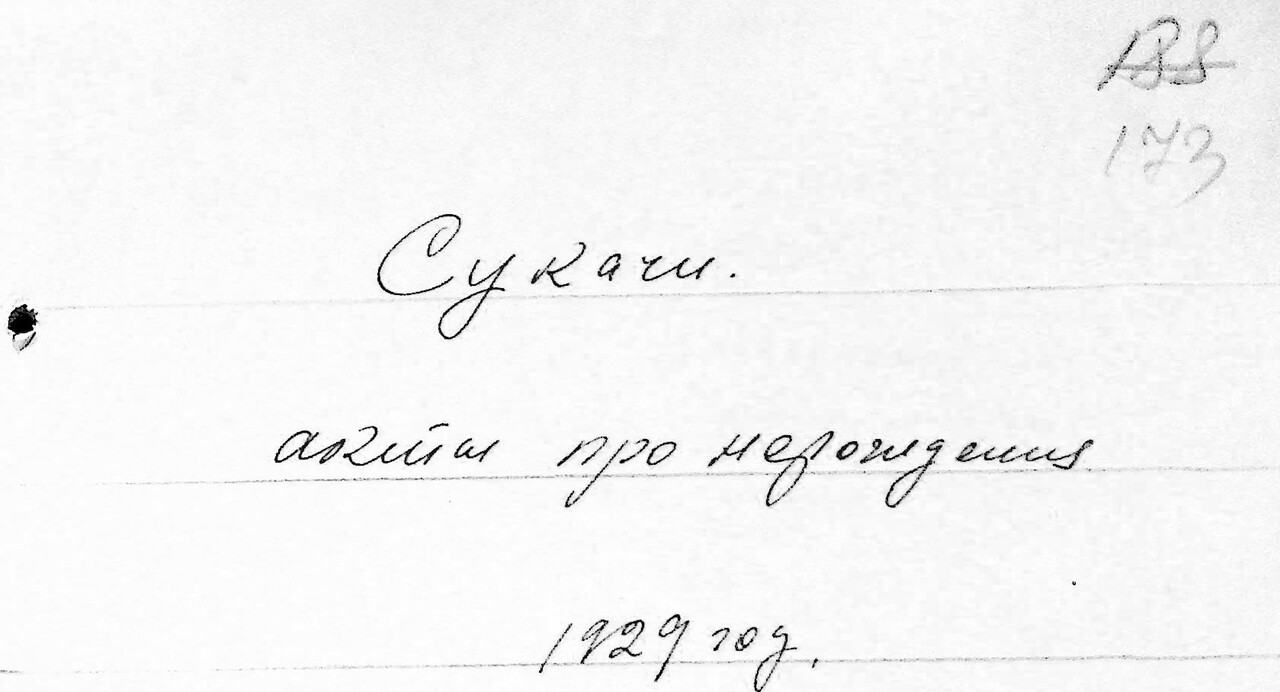 188
173
Сукачи.
акты про нарождения
1929 год.